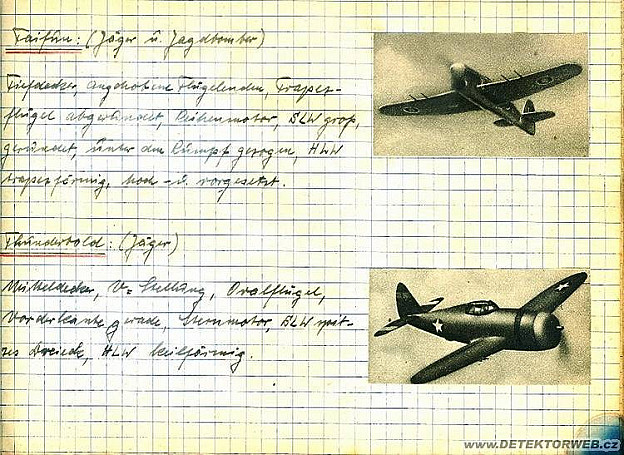 Taifun: (Jäger u. Jagdbomber)
Tiefdecker, angehobene Flügelenden, Trapez-
flügel abgerundet, Reihenmotor, SLW groß,
gerundet, unter den Rumpf gezogen, HLW
trapezförmig, hoch- u. vorgesetzt.
Thunderbold: (Jäger)
Mitteldecker, V-Stellung, Ovalflügel,
Vorderkante gerade, Sternmotor, SLW spit-
zes Dreieck, HLW keilförmig.
WWW.DETEKTORWEB.CZ